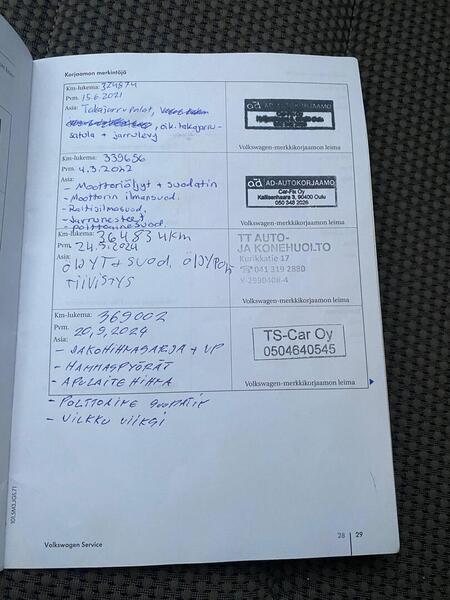 Korjaamon merkintöjä
Km-lukema: 324874
Pvm. 15.6 2021
Asia: Takajarrupalat,
, oik.takajarru-
satula + jarrulevy
ad AD-AUTOKORJAAMO
Volkswagen-merkkikorjaamon leima
Km-lukema: 339656
Pvm. 4.3.2022
Asia:
- Moottoriöljyt + suodatin
- Moottorin ilmansuod.
- Raitisilmasuod.
- Jarrunesteet
- Polttoainesuod.
ad AD-AUTOKORJAAMO
Car-Fix Oy
Kallisenhaara 3, 90400 Oulu
050 348 2026
Volkswagen-merkkikorjaamon leima
Km-lukema: 364834km
Pvm. 24.5.2024
Asia:
ÖLJYT+SUOD. ÖLJYPOH
TIIVISTYS
TT AUTO-
JA KONEHUOLTO
Kurikkatie 17
☎ 041 319 2880
Y-2990408-4
Volkswagen-merkkikorjaamon leima
Km-lukema: 369002
Pvm. 20,9,2024
Asia:
- JAKOHIHNASARJA + VP
- HAMMASPYÖRÄT
- APULAITEHIHNA
- POLTTOAINE SUODATIN
- VILKKU VIIKSI
TS-Car Oy
0504640545
Volkswagen-merkkikorjaamon leima
Volkswagen Service
28 | 29